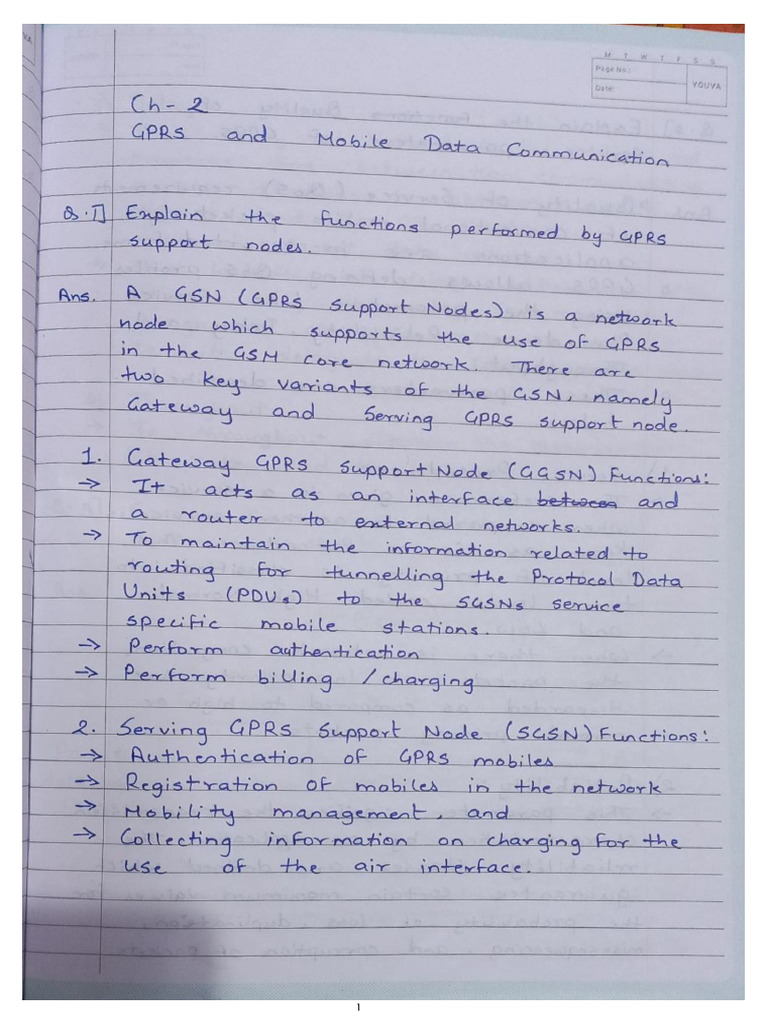 M T W T F S S
Page No.:
Date:
YOUVA
Ch-2
GPRS and Mobile Data Communication
Q.1] Explain the functions performed by GPRS
support nodes.
Ans. A GSN (GPRS Support Nodes) is a network
node which supports the use of GPRS
in the GSM core network. There are
two key variants of the GSN, namely
Gateway and Serving GPRS support node.
1. Gateway GPRS Support Node (GGSN) Functions:
→ It acts as an interface between and
a router to external networks.
→ To maintain the information related to
routing for tunnelling the Protocol Data
Units (PDUs) to the SGSNs service
specific mobile stations.
→ Perform authentication
→ Perform billing / charging
2. Serving GPRS Support Node (SGSN) Functions:
→ Authentication of GPRS mobiles
→ Registration of mobiles in the network
→ Mobility management, and
→ Collecting information on charging for the
use of the air interface.
1